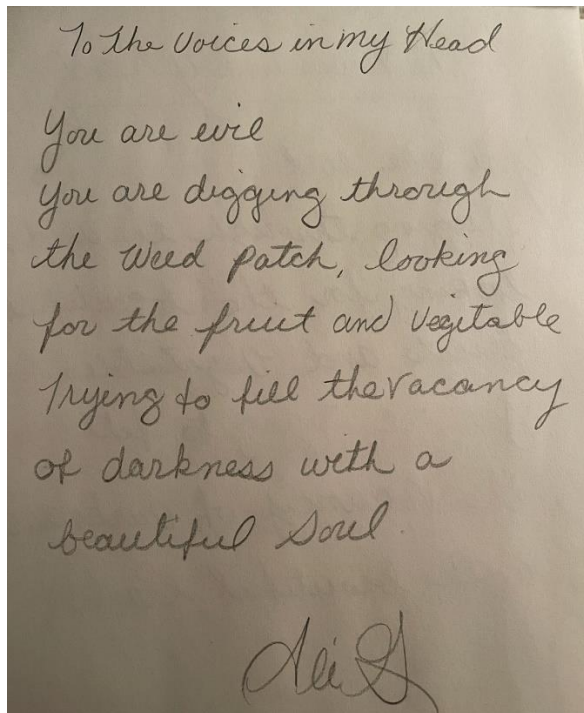 To the Voices in my Head
You are evil
You are digging through
the Weed patch, looking
for the fruit and vegitable
Trying to fill the vacancy
of darkness with a
beautiful soul.
Ali G